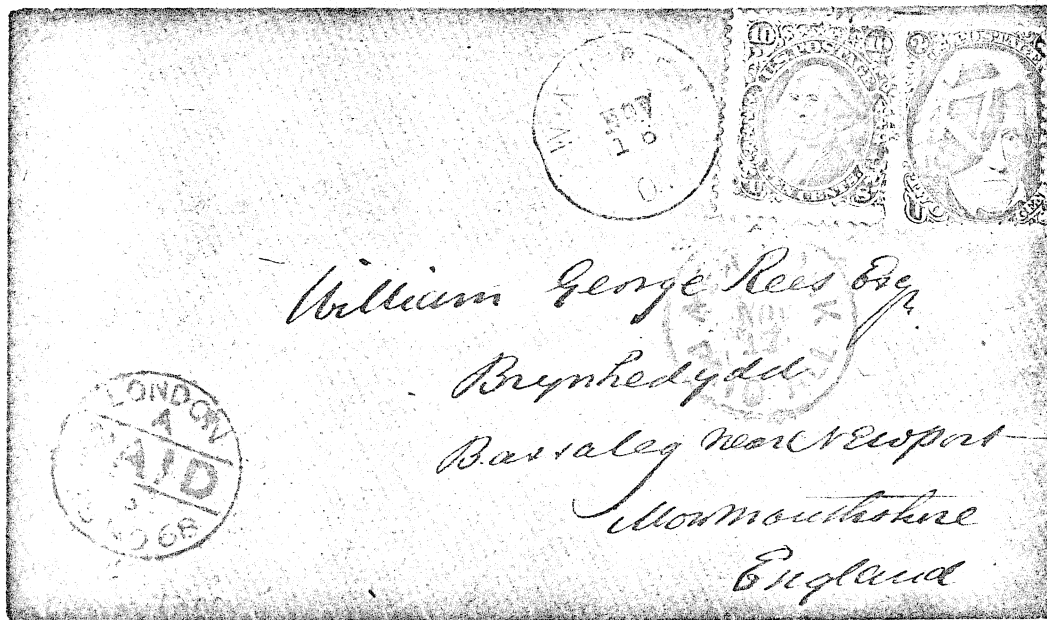 NOV
18
O.
U.S. POSTAGE
William George Rees Esqr
Brynhedydd
Bassaleg near Newport
Monmouthshire
England
LONDON
A
PAID
68